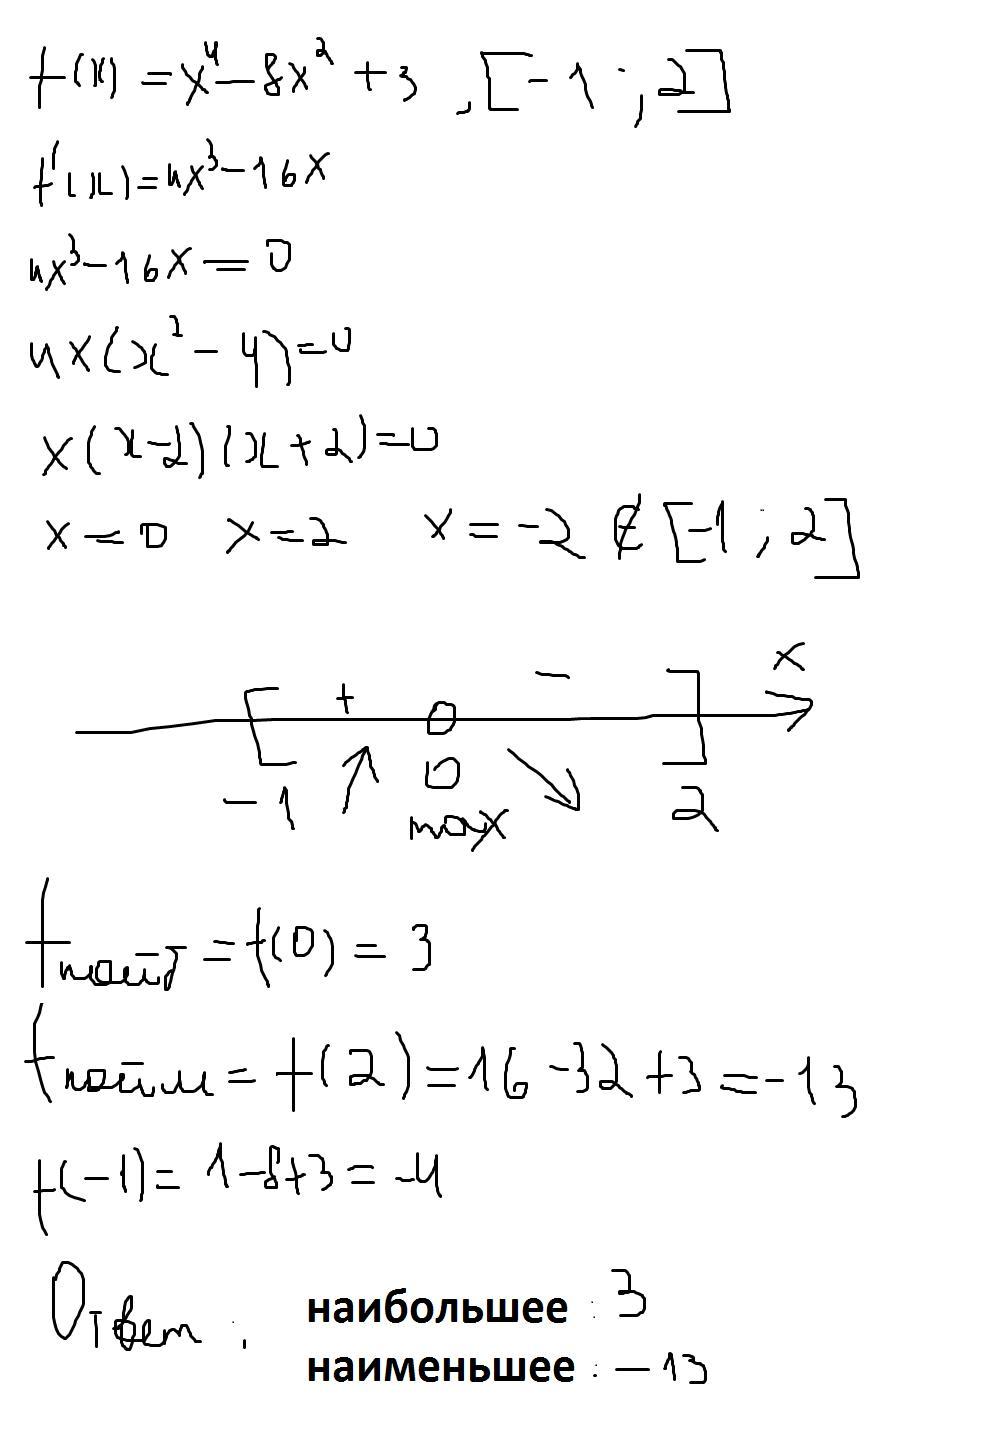 f(x) = x⁴ - 8x² + 3 , [-1 ; 2]
f'(x) = 4x³ - 16x
4x³ - 16x = 0
4x(x² - 4) = 0
x(x-2)(x+2) = 0
x = 0 x = 2 x = -2 ∉ [-1 ; 2]
+ - x
-1 0 2
max
fнаиб = f(0) = 3
fнаим = f(2) = 16 - 32 + 3 = -13
f(-1) = 1 - 8 + 3 = -4
Ответ : наибольшее : 3
наименьшее : -13